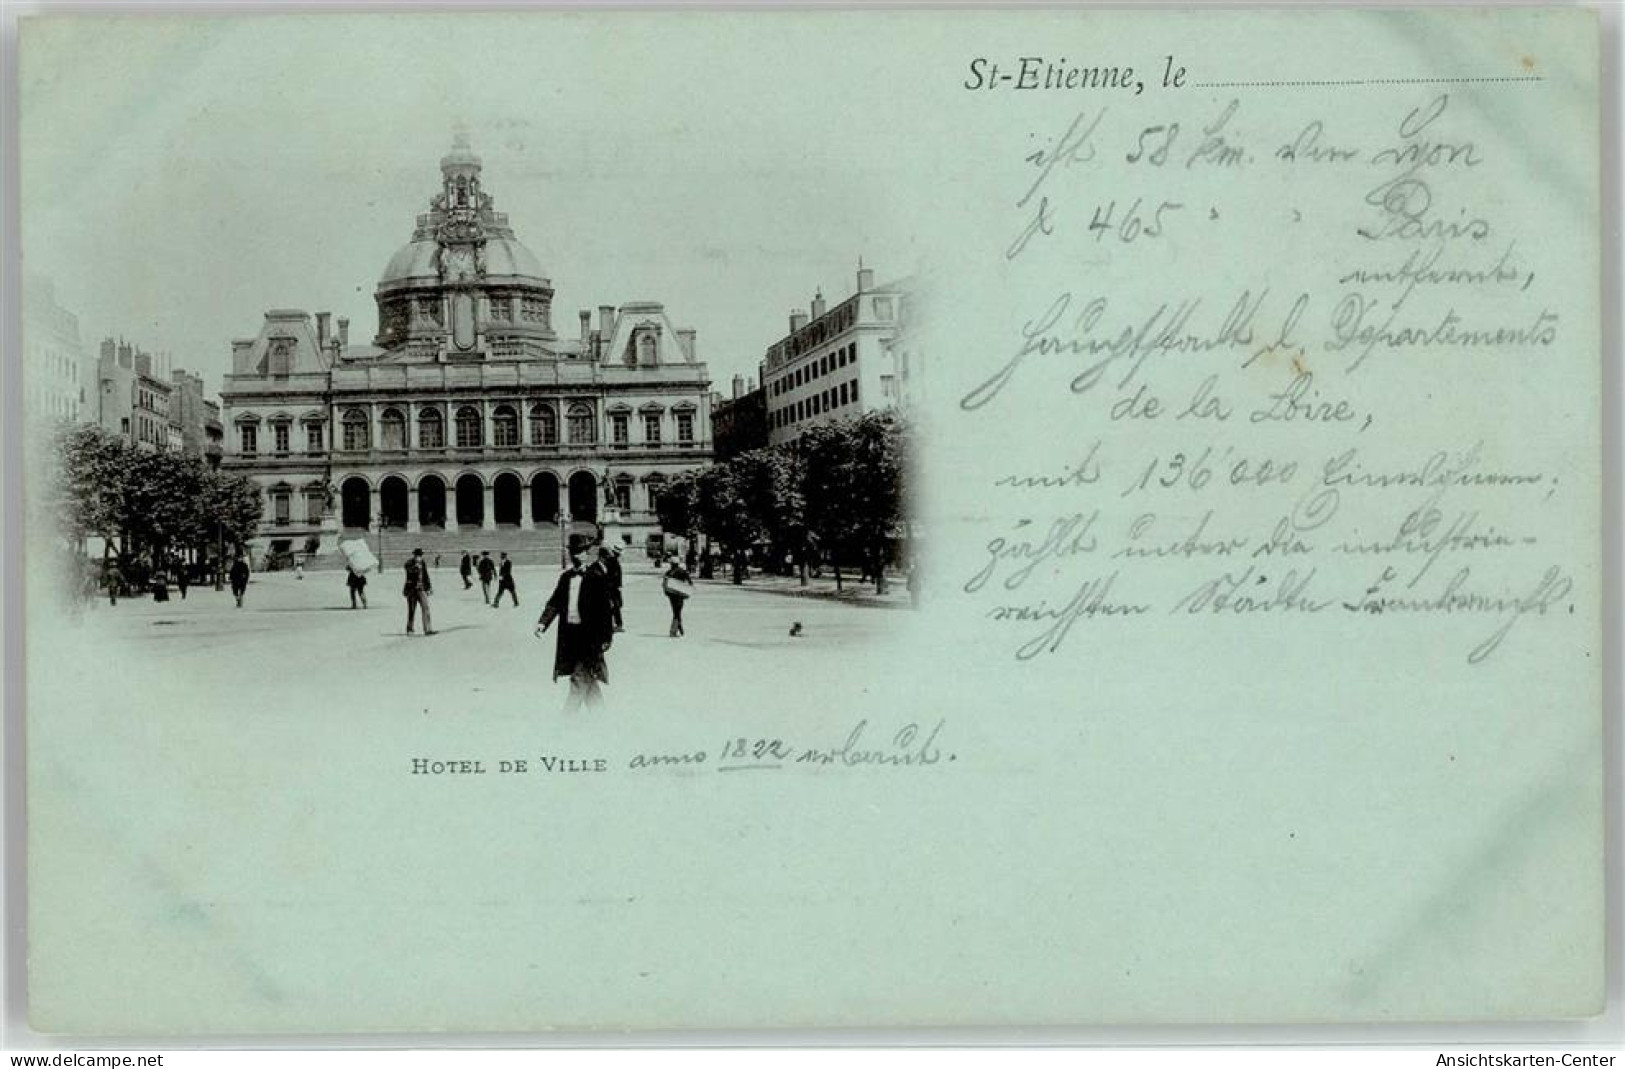 St-Etienne, le
ist 58 km. von Lyon
& 465 " " Paris
entfernt,
Hauptstadt d. Départements
de la Loire,
mit 136'000 Einwohnern;
zählt unter die industrie-
reichsten Städte Frankreichs.
HOTEL DE VILLE anno 1822 erbaut.
www.delcampe.net
Ansichtskarten-Center